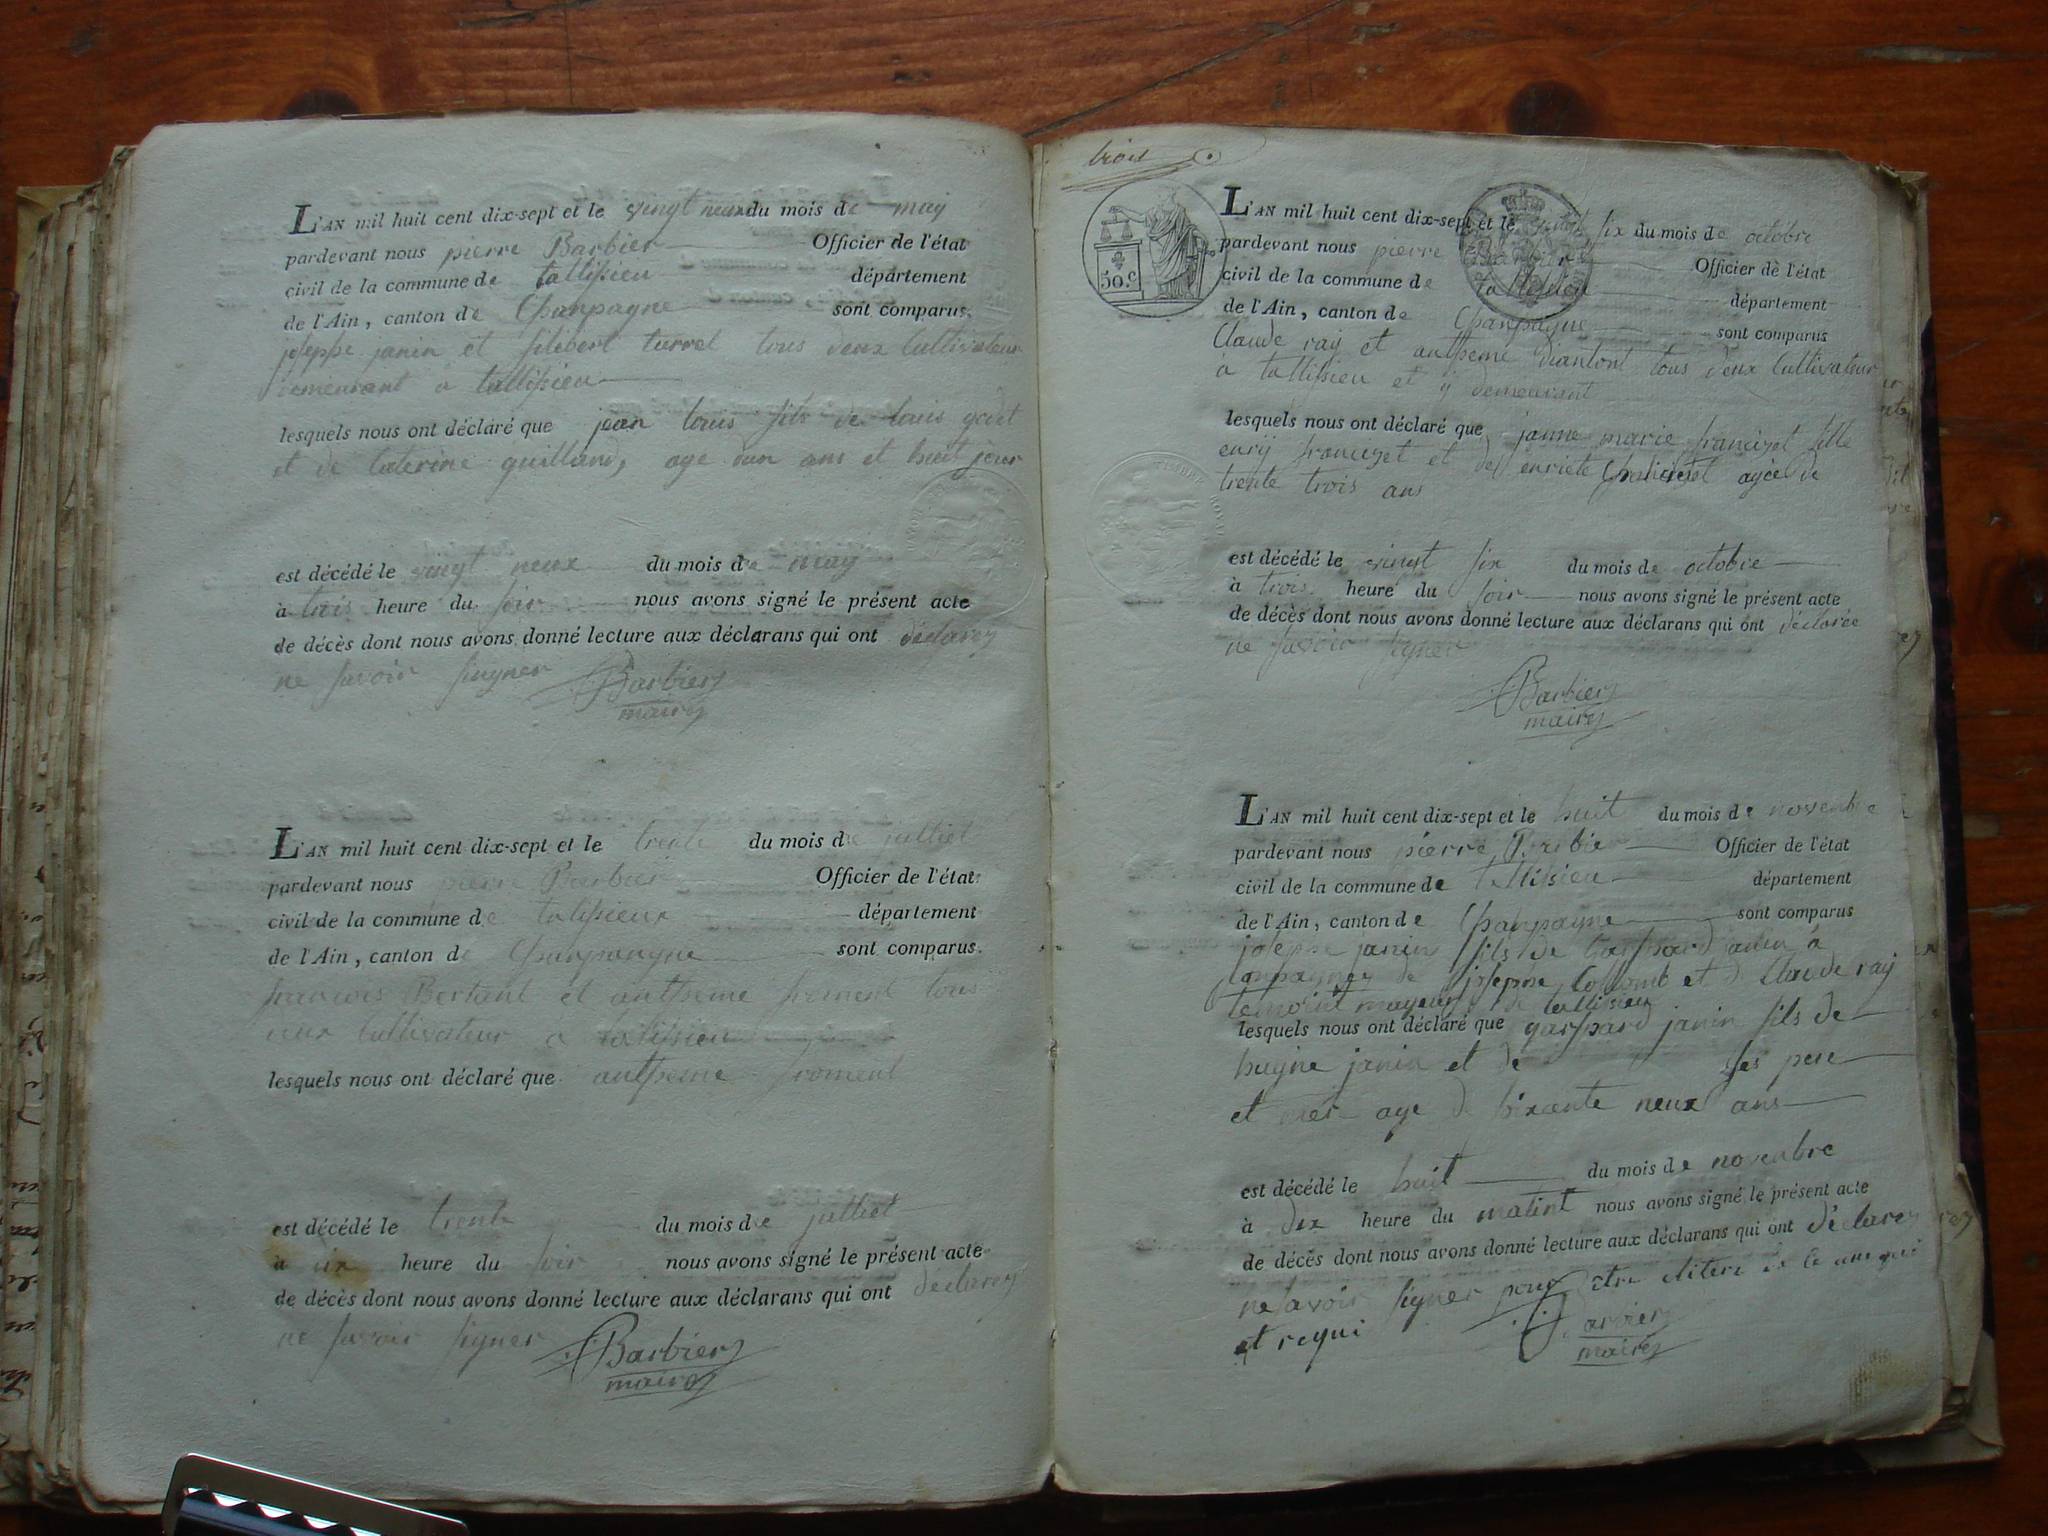 L'AN mil huit cent dix-sept et le vingt neuxdu mois de may
pardevant nous pierre Barbier Officier de l'état
civil de la commune de tallissieu département
de l'Ain, canton de Chanpagne sont comparus.
joseppe janin et filibert turrel tous deux Cultivateur
demeurant a tallissieu
lesquels nous ont déclaré que jean louis fils de louis godet
et de caterine guilland, age dun ans et huit jour
est décédé le vingt neux du mois de may
à trois heure du soir nous avons signé le présent acte
de décès dont nous avons donné lecture aux déclarans qui ont déclarez
ne savoir siugner Barbier
maire
L'AN mil huit cent dix-sept et le trente du mois de julliet
pardevant nous pierre Barbier Officier de l'état
civil de la commune de talissieux département
de l'Ain, canton de Chanpangne sont comparus.
francois Bertant et antheme froment tous
deux Cultivateur a talissieu
lesquels nous ont déclaré que antheme froment
est décédé le trente du mois de julliet
à six heure du soir nous avons signé le présent acte
de décès dont nous avons donné lecture aux déclarans qui ont declarez
ne savoir signer Barbier
maire
trois
50 c
L'AN mil huit cent dix-sept et le vingt six du mois de octobre
pardevant nous pierre Barbier Officier de l'état
civil de la commune de tallissieu département
de l'Ain, canton de Chanpagne sont comparus
Claude ray et antheme diantont tous deux Cultivateur
a tallissieu et ÿ demeurant
lesquels nous ont déclaré que janne marie francizet fille
enrij francizet et de enriete agée de
trente trois ans
est décédé le vingt six du mois de octobre
à trois heure du soir nous avons signé le présent acte
de décès dont nous avons donné lecture aux déclarans qui ont déclarée
ne savoir signer
Barbier
maire
L'AN mil huit cent dix-sept et le huit du mois de novenbre
pardevant nous pierre Barbier Officier de l'état
civil de la commune de tallissieu département
de l'Ain, canton de Chanpagne sont comparus
joseppe janin fils de Gaspard janin a
Conpagnez de joseppe et d Claude ray
temoint mayeur de tallissieu
lesquels nous ont déclaré que gaspard janin fils de
hugne janin et de ses pere
et mer age d soixcente neux ans
est décédé le huit du mois de novenbre
à dix heure du matint nous avons signé le présent acte
de décès dont nous avons donné lecture aux déclarans qui ont déclarez
ne savoir signer pour être
et requi Barbier
maire